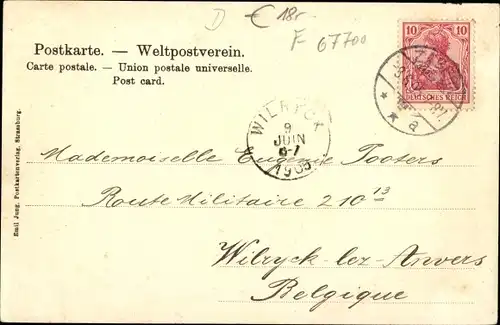 D € 18.-
F- 67700
Postkarte. — Weltpostverein.
Carte postale. — Union postale universelle.
Post card.
10 10
DEUTSCHES REICH
a
WILRYCK
9
JUIN
6-7
1905
Mademoiselle Eugenie Tooters
Route Militaire 210 13
Wilryck-lez-Anvers
Belgique
Emil Jung, Postkartenverlag, Strassburg.